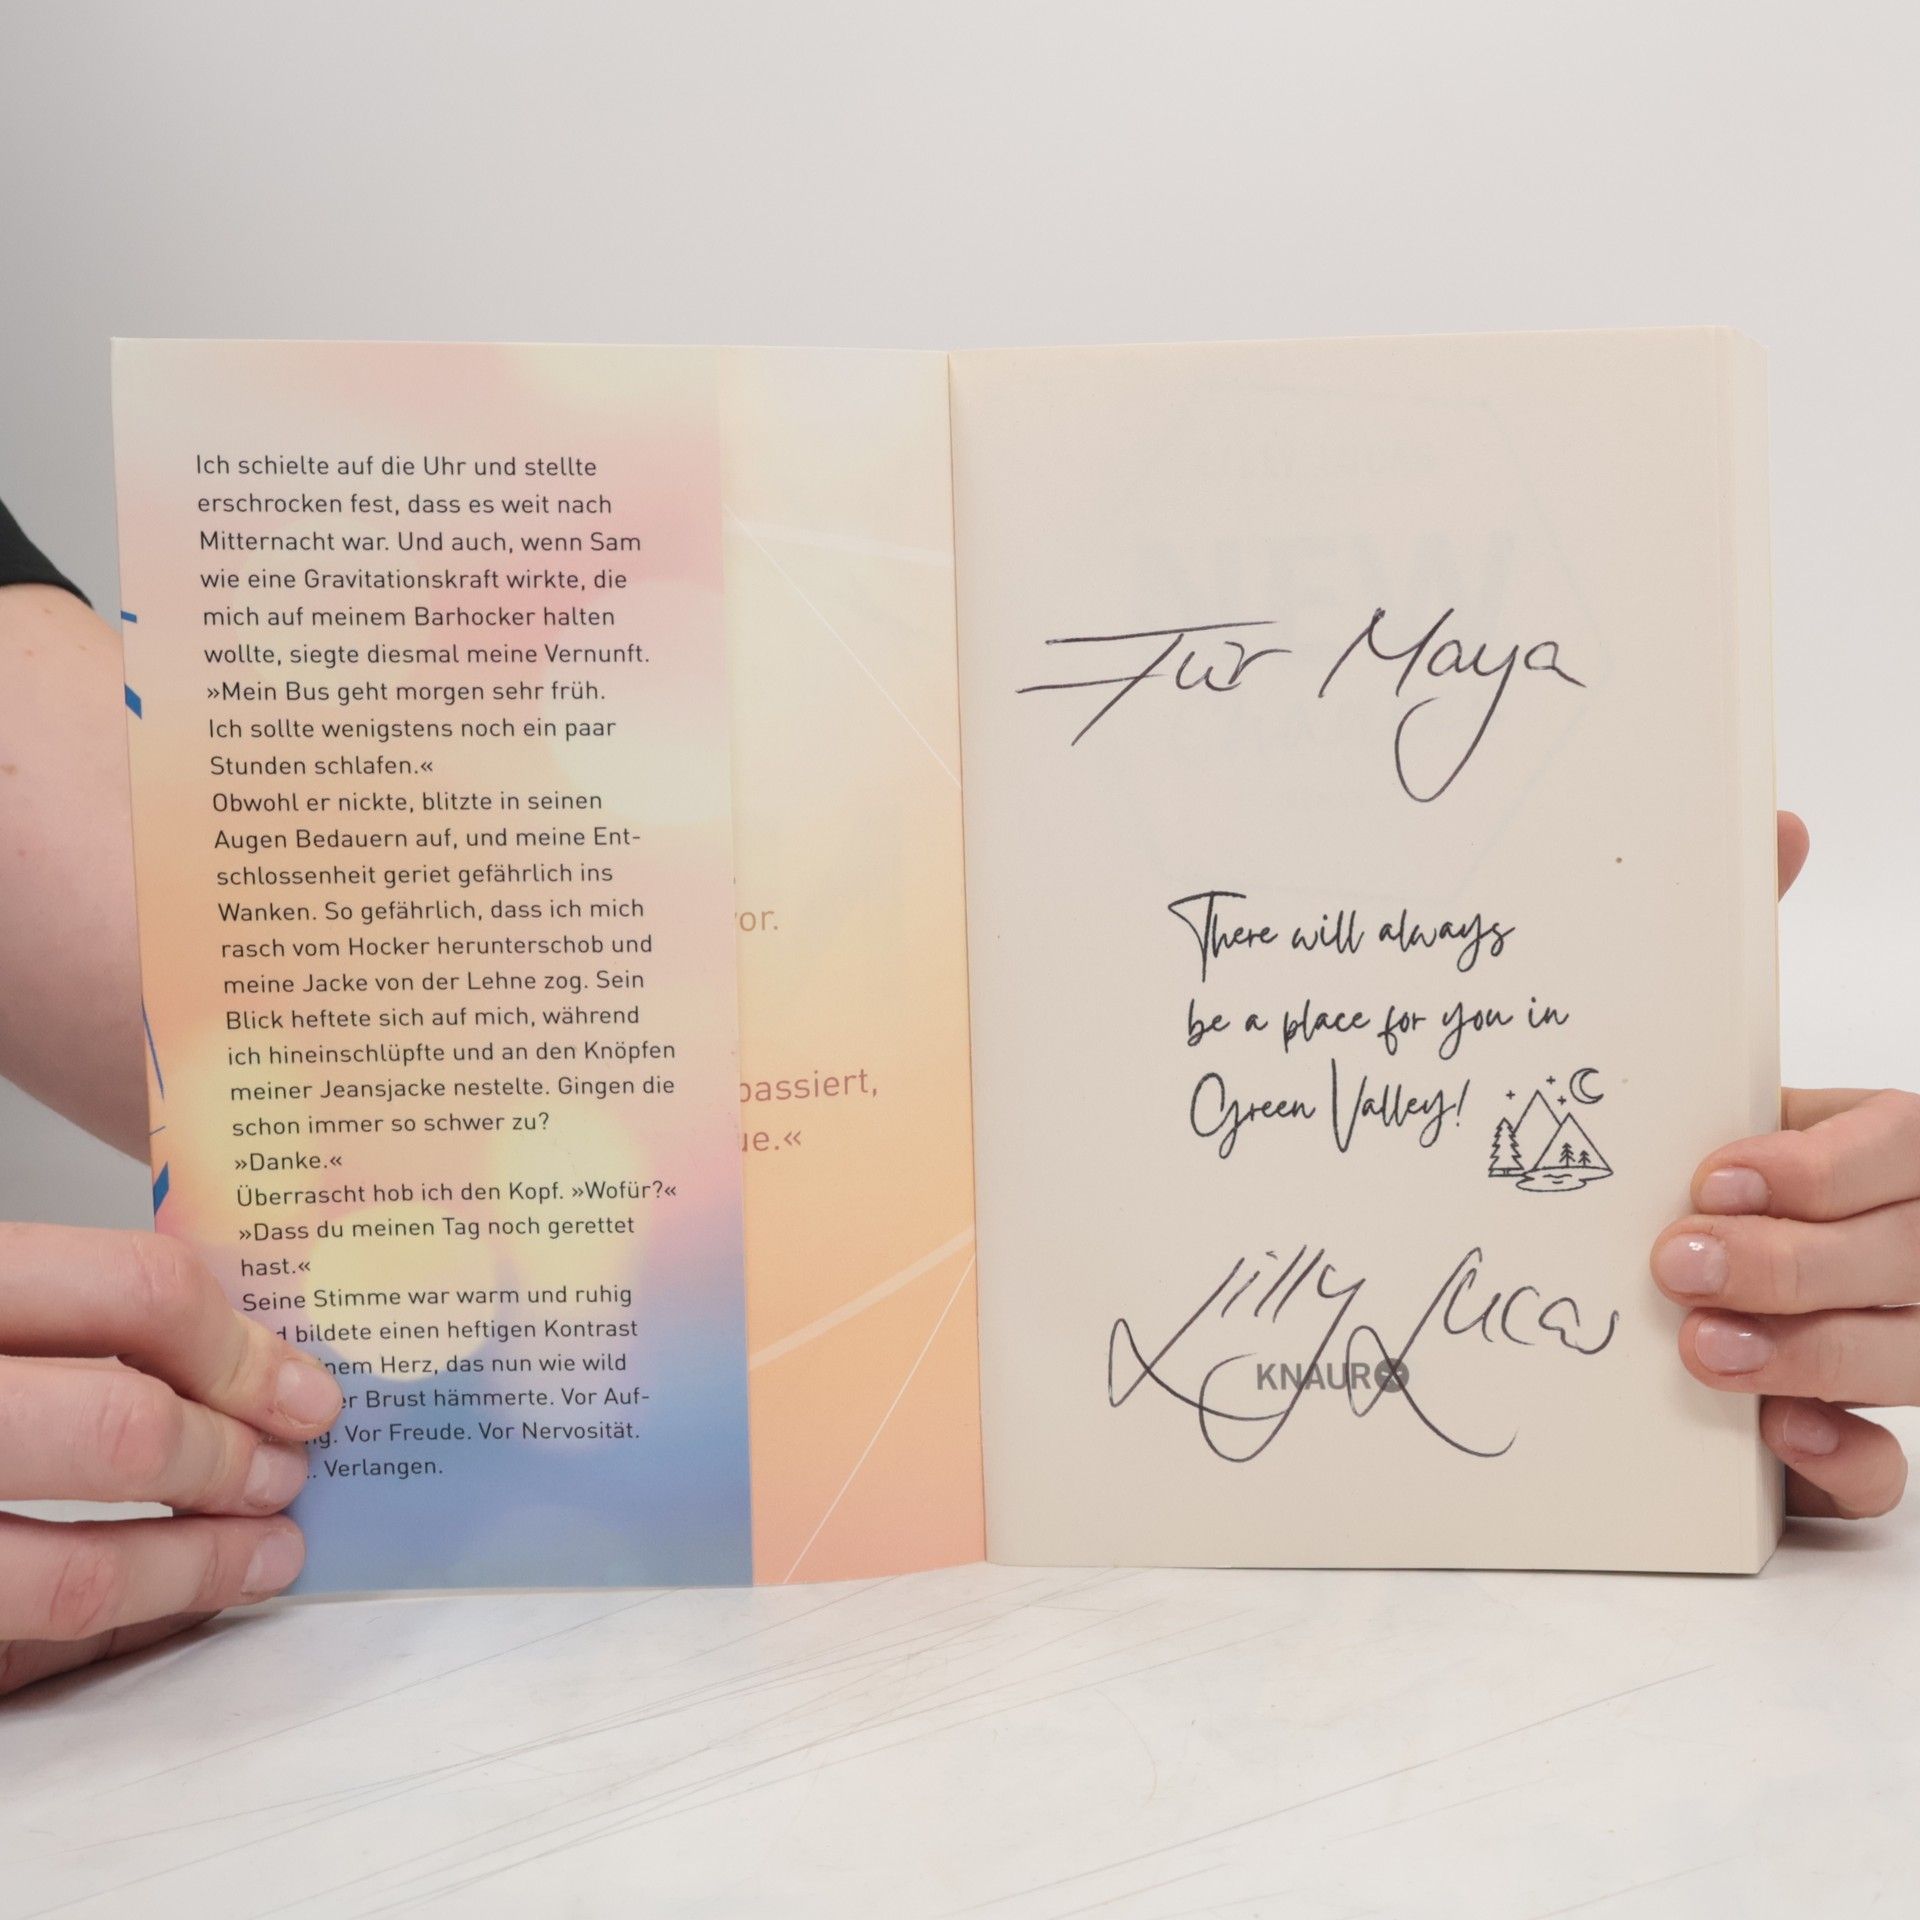 Ich schielte auf die Uhr und stellte
erschrocken fest, dass es weit nach
Mitternacht war. Und auch, wenn Sam
wie eine Gravitationskraft wirkte, die
mich auf meinem Barhocker halten
wollte, siegte diesmal meine Vernunft.
»Mein Bus geht morgen sehr früh.
Ich sollte wenigstens noch ein paar
Stunden schlafen.«
Obwohl er nickte, blitzte in seinen
Augen Bedauern auf, und meine Ent-
schlossenheit geriet gefährlich ins
Wanken. So gefährlich, dass ich mich
rasch vom Hocker herunterschob und
meine Jacke von der Lehne zog. Sein
Blick heftete sich auf mich, während
ich hineinschlüpfte und an den Knöpfen
meiner Jeansjacke nestelte. Gingen die
schon immer so schwer zu?
»Danke.«
Überrascht hob ich den Kopf. »Wofür?«
»Dass du meinen Tag noch gerettet
hast.«
Seine Stimme war warm und ruhig
bildete einen heftigen Kontrast
Herz, das nun wie wild
Brust hämmerte. Vor Auf-
Vor Freude. Vor Nervosität.
Verlangen.
vor.
passiert,
Für Maya
There will always
be a place for you in
Green Valley!
Lilly Lucas
KNAUR